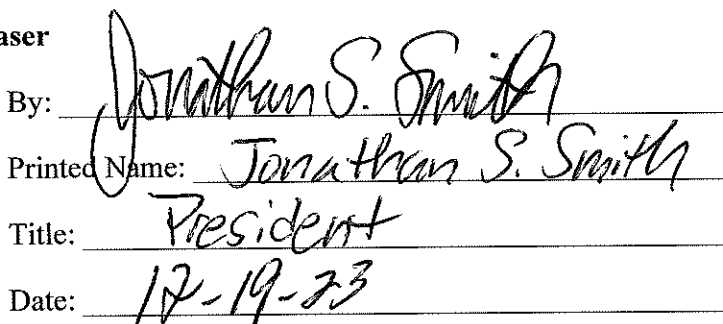 aser
By: Jonathan S. Smith
Printed Name: Jonathan S. Smith
Title: President
Date: 12-19-23